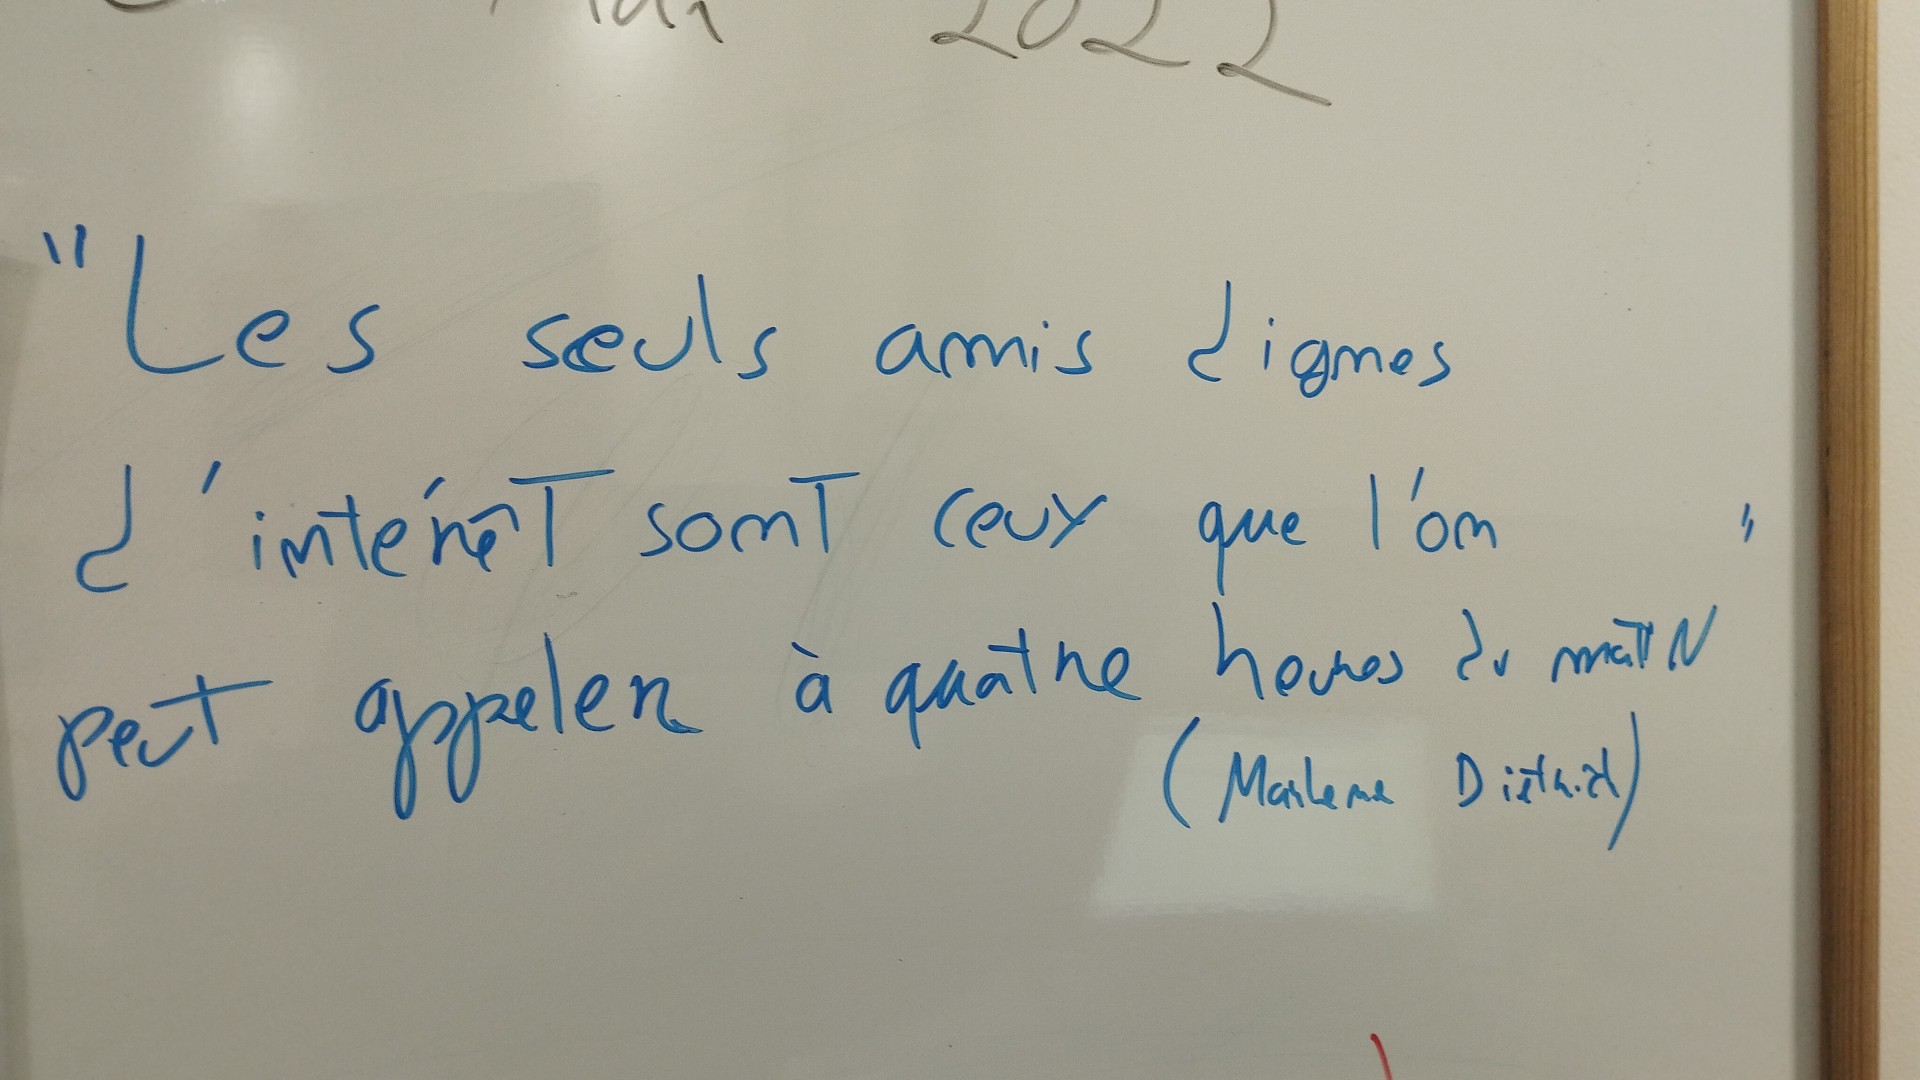 Mai 2022
"Les seuls amis dignes
d'intérêt sont ceux que l'on
peut appeler à quatre heures du matin"
(Marlene Dietrich)